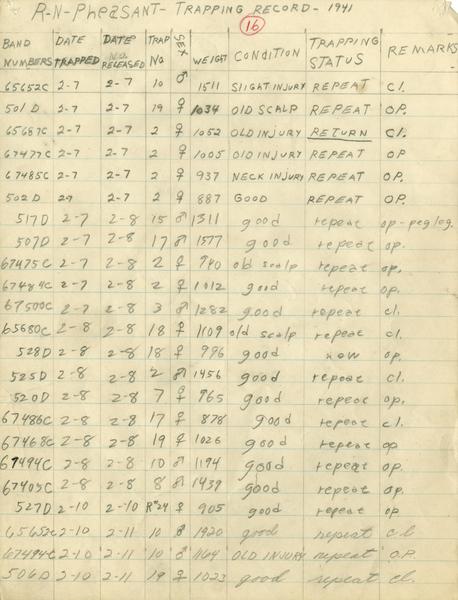 R-N-PheasanT- TRAPPING RECORD- 1941
16
BAND NUMBERS DATE TRAPPED DATE RELEASED TRAP No. SEX WEIGHT CONDITION TRAPPING STATUS REMARKS
65652C 2-7 2-7 10 ♂ 1511 SLIGHT INJURY REPEAT Cl.
501 D 2-7 2-7 19 ♀ 1034 OLD SCALP REPEAT OP.
65687C 2-7 2-7 2 ♀ 1052 OLD INJURY RETURN Cl.
67477C 2-7 2-7 2 ♀ 1005 OLD INJURY REPEAT OP
67485C 2-7 2-7 2 ♀ 937 NECK INJURY REPEAT OP.
502 D 2-7 2-7 2 ♀ 887 GOOD REPEAT OP.
517D 2-7 2-8 15 ♂ 1311 good repeat op-peg leg.
507D 2-7 2-8 17 ♂ 1577 good repeat op.
67475C 2-7 2-8 2 ♀ 940 old scalp repeat op.
67484C 2-7 2-8 2 ♀ 1012 good repeat op.
67500C 2-7 2-8 3 ♂ 1282 good repeat cl.
65680C 2-8 2-8 18 ♀ 1109 old scalp repeat cl.
528D 2-8 2-8 18 ♀ 996 good new op.
525D 2-8 2-8 2 ♂ 1456 good repeat cl.
520D 2-8 2-8 7 ♀ 865 good repeat op.
67486C 2-8 2-8 17 ♀ 878 good repeat cl.
67468C 2-8 2-8 19 ♀ 1026 good repeat op
67494C 2-8 2-8 10 ♂ 1194 good repeat op.
67405C 2-8 2-8 8 ♂ 1439 good repeat op.
527D 2-10 2-10 24 ♀ 905 good repeat op
65653C 2-10 2-11 10 ♂ 1920 good repeat cl
67494C 2-10 2-11 10 ♂ 1164 OLD INJURY repeat O.P.
506D 2-10 2-11 19 ♀ 1023 good repeat cl.